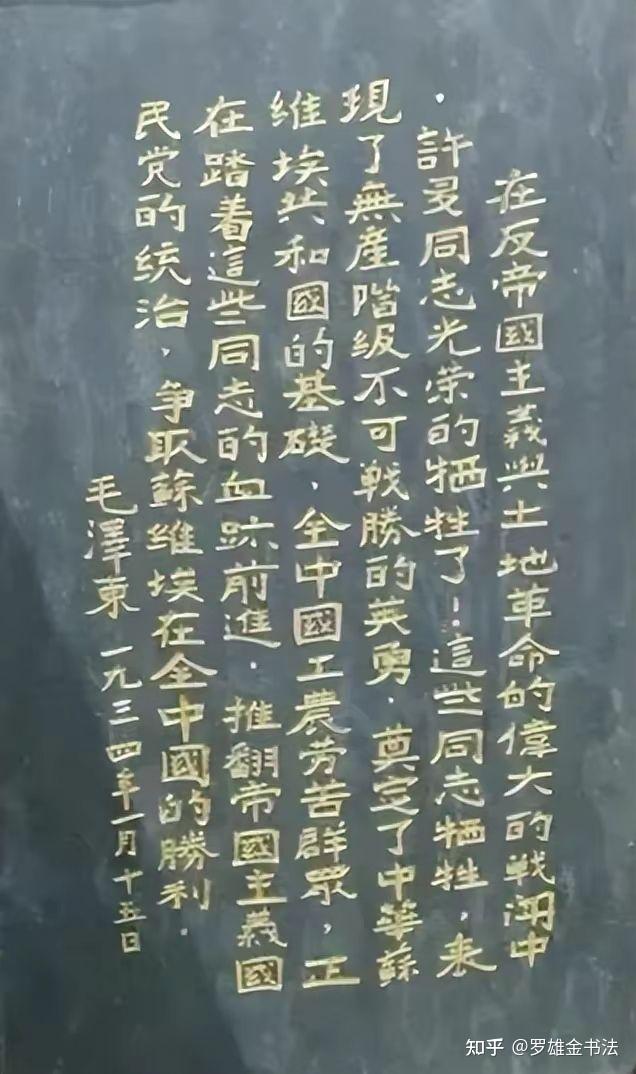 在反帝國主義與土地革命的偉大的戰鬥中
，許多同志光荣的牺牲了！這些同志牺牲，表
現了無產階級不可戰勝的英勇．奠定了中華蘇
維埃共和國的基礎．全中國工農劳苦群眾，正
在踏着這些同志的血跡前進．推翻帝國主義國
民党的統治．争取蘇維埃在全中國的勝利．
毛澤東 一九三四年一月十五日
知乎 @罗雄金书法